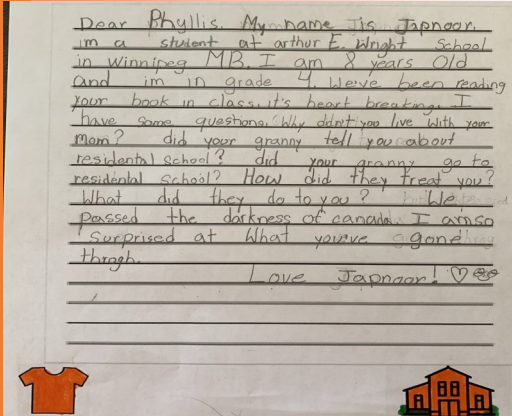 Dear Phyllis. My name is Japnoor.
im a student at arthur E. Wright School
in Winnipeg MB. I am 8 years old
and im in grade 4. We've been reading
your book in class. it's heart breaking. I
have some questions. Why didn't you live with your
mom? did your granny tell you about
residental school? did your granny go to
residental school? How did they treat you?
What did they do to you? We
passed the darkness of canada. I am so
Surprised at What you've gone
throgh.
Love Japnoor!